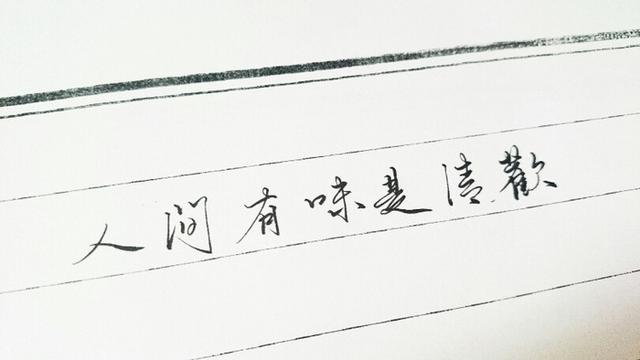 人间有味是清歡